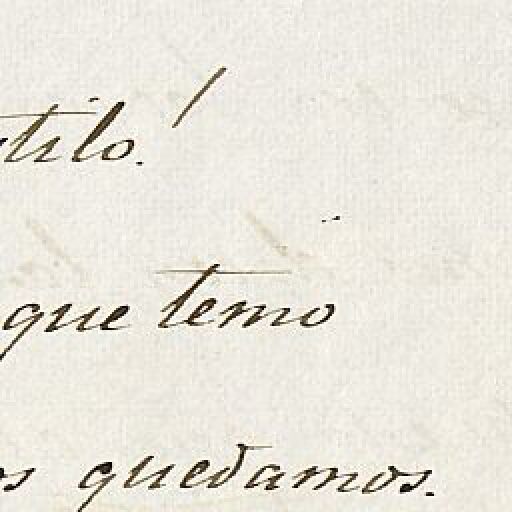 stilo!
que temo
os quedamos.